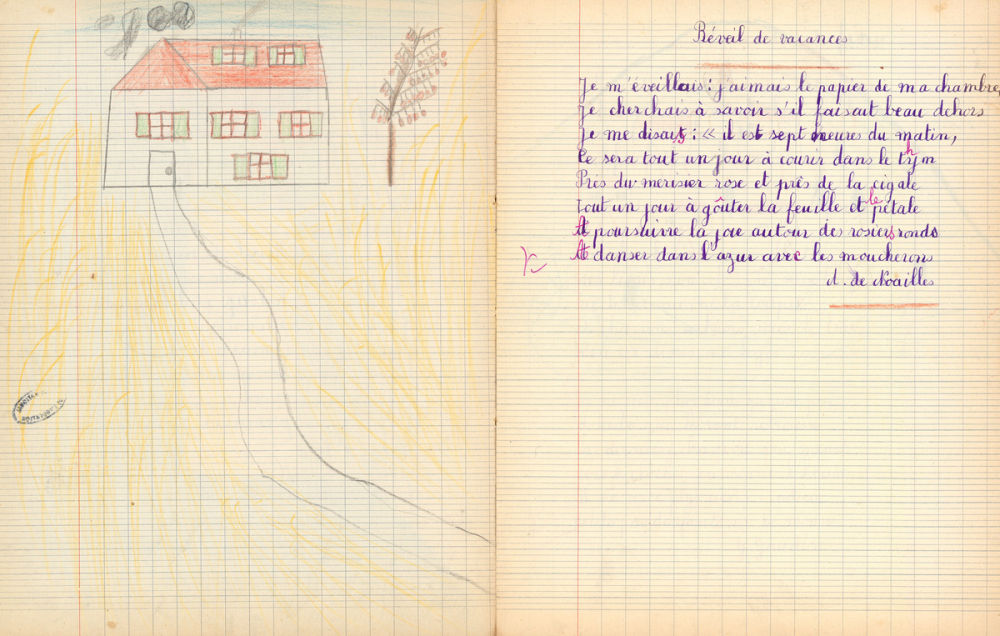 Réveil de vacances
Je m'éveillais : j'aimais le papier de ma chambre,
Je cherchais à savoir s'il faisait beau dehors
Je me disais : « il est sept heures du matin,
Ce sera tout un jour à courir dans le thym
Près du merisier rose et près de la cigale
Tout un jour à goûter la feuille et le pétale
A poursuivre la joie autour des rosiers ronds
A danser dans l'azur avec les moucherons
A. de Noailles